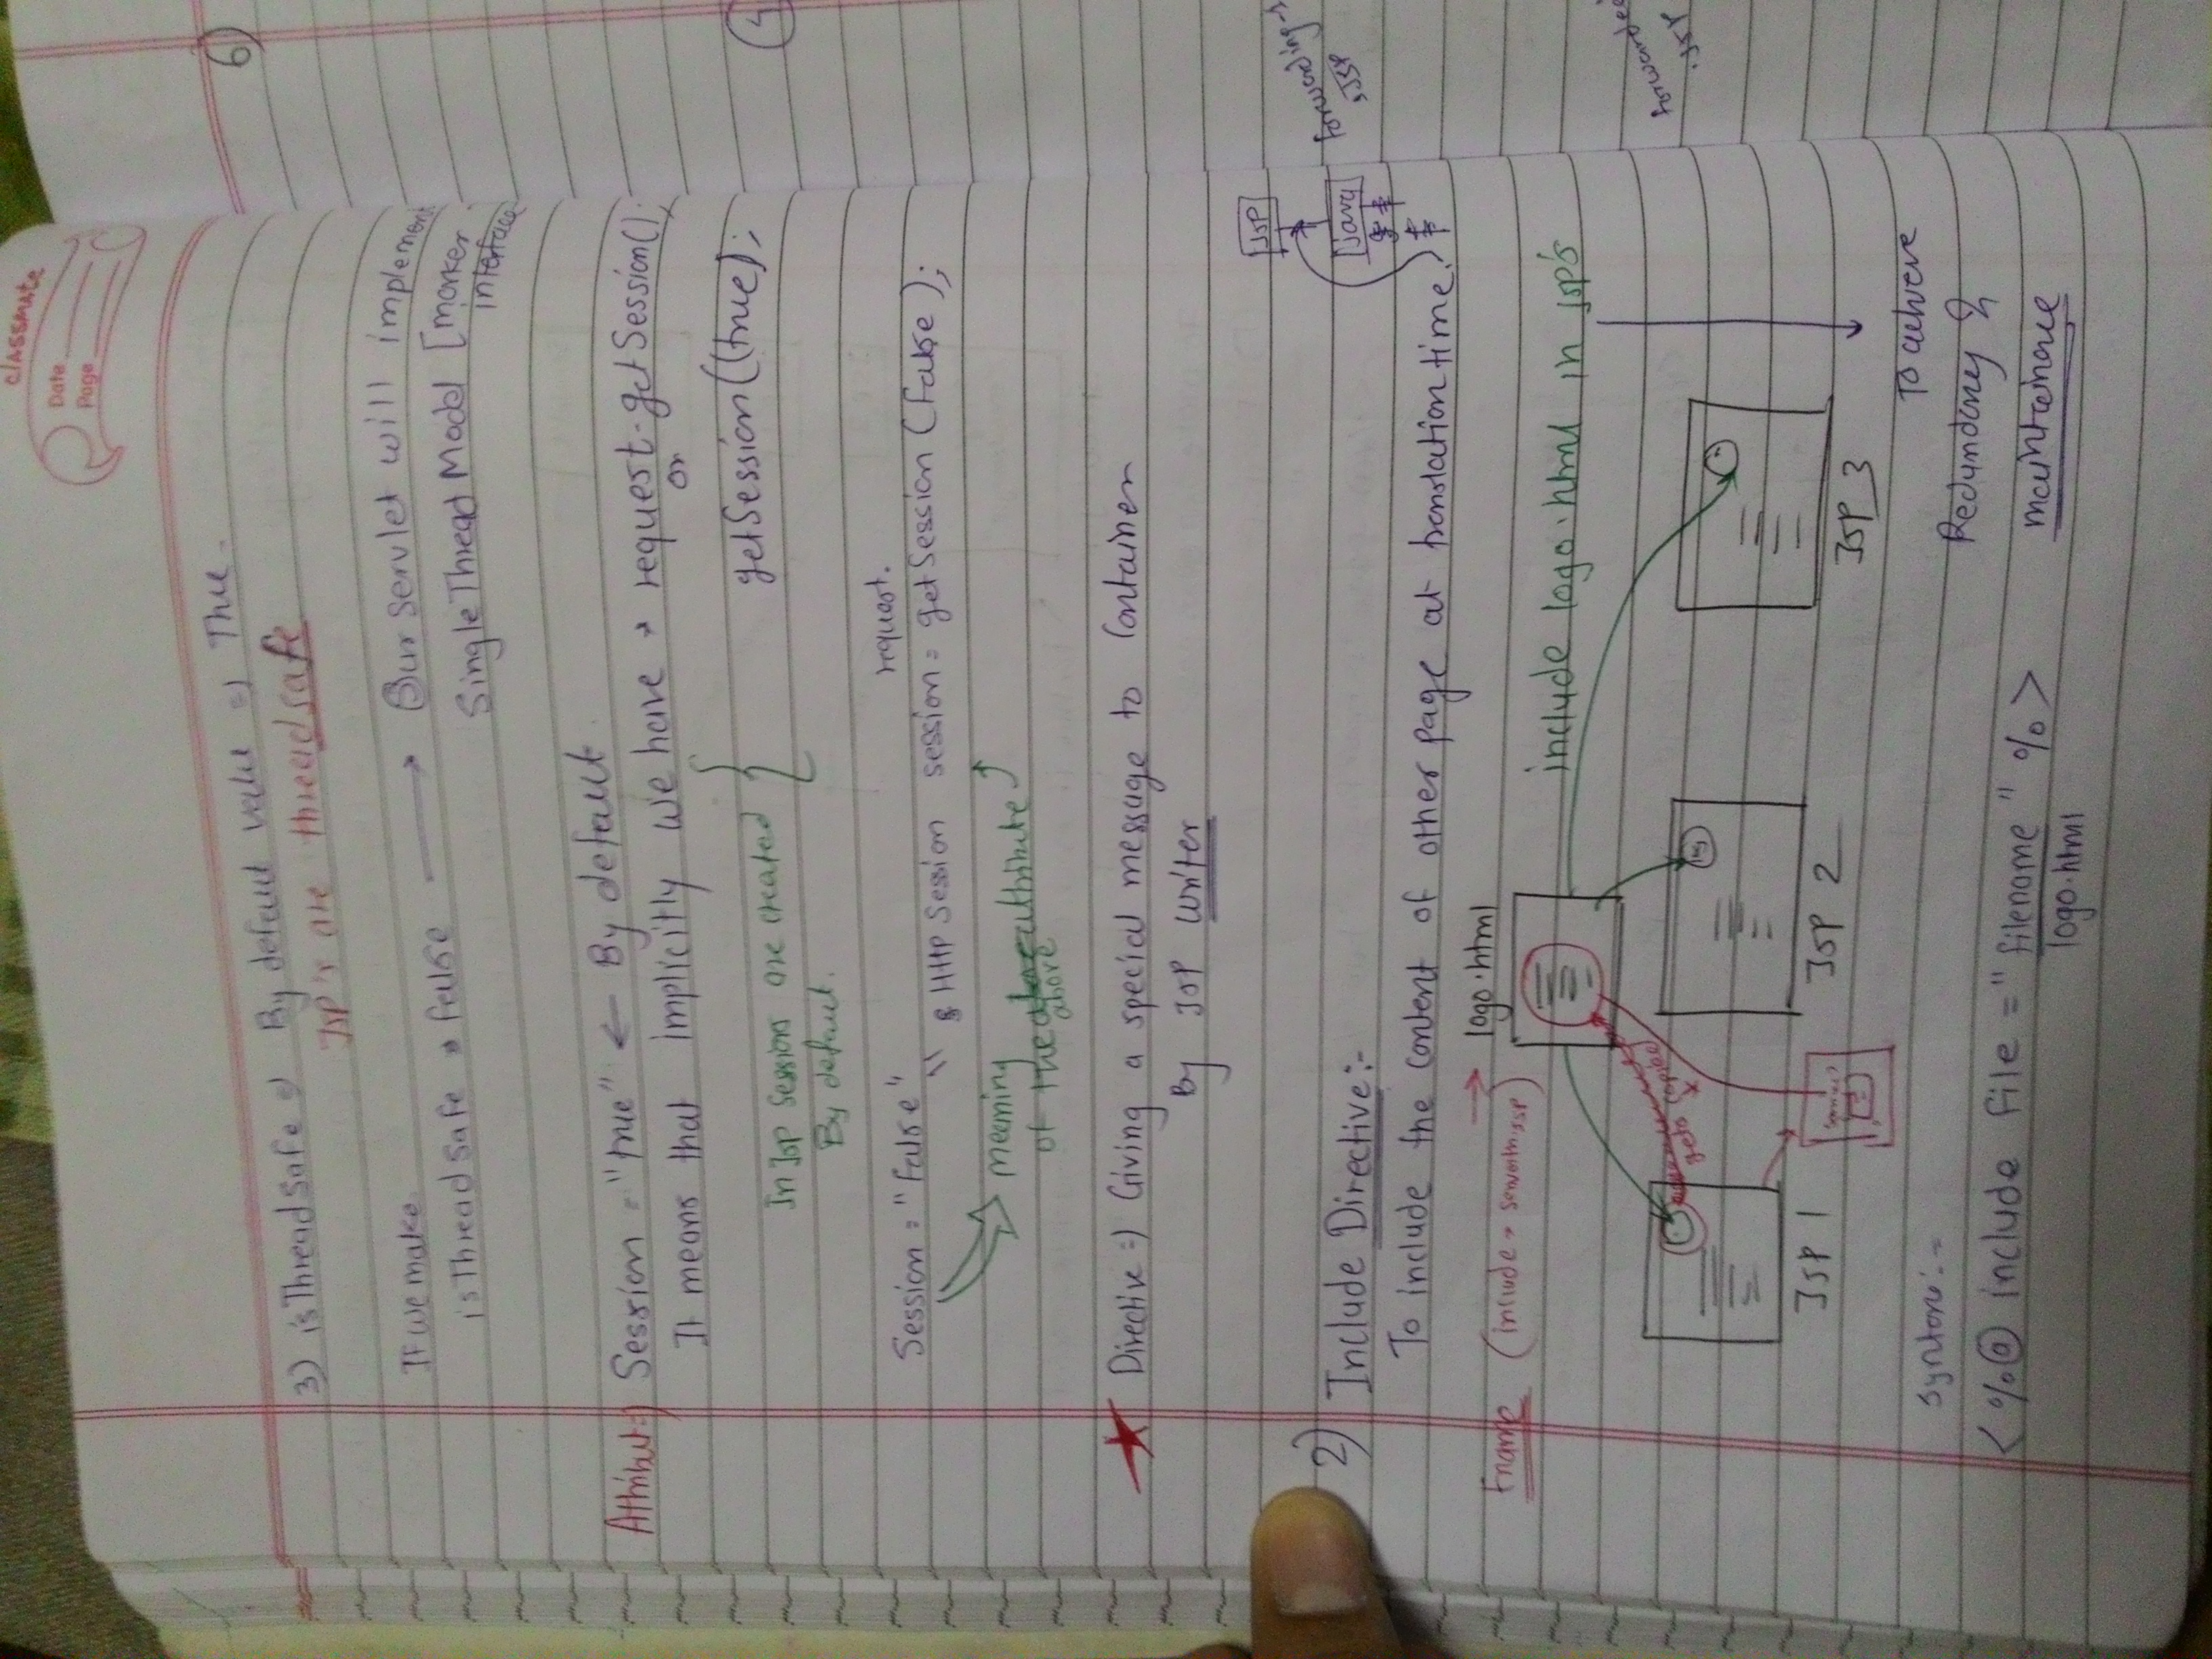 classmate
Date
Page
3) isThreadSafe => By default value => True.
JSP's are threadsafe
If we make
isThreadSafe = false → Our servlet will implement
SingleThreadModel [marker
interface
Attribut=> Session = "true" ← By default
It means that implicitly we have → request.getSession();
or
getSession((true);
In Jsp sessions are created
By default.
Session = "false"
request.
HttpSession session = getSession (false);
meaning
of the above attribute
Directive => Giving a special message to Container
By JSP writer
2) Include Directive:-
To include the content of other page at translation time.
JSP
java
forwarding
.JSP
logo.html
Fname (include → .jsp)
include logo.html in JSP's
gets copied
JSP 1
JSP 2
JSP 3
forwarded
.JSP
To achieve
Redundancy &
maintainance
Syntax:-
<%@ include file = "filename" %>
logo.html
6)
4